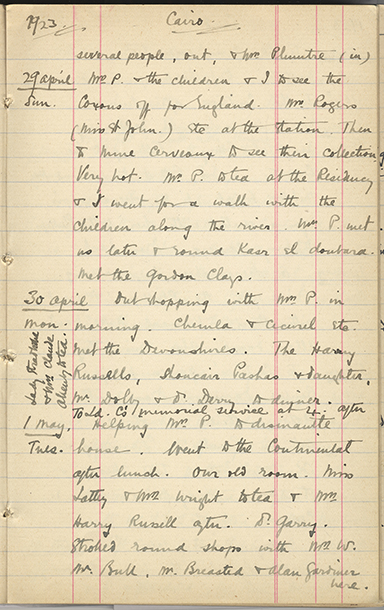 1923. Cairo.
several people, out, & Mrs Plumtre (in)
29 april Mr P. & the children & I to see the
Sun. Coxons off for England. Mrs Rogers
(Miss St John.) etc at the station. Then
to Mme Cerveaux to see their collection,
Very hot. Mr P. to tea at the Residency
& I went for a walk with the
children along the river. Mrs P. met
us later & round Kasr el doubara.
Met the Gordon Clays.
30 april Out shopping with Mrs P. in
Mon. morning. Chemla & Cicurel etc.
Lady
& Mrs Claude
to tea
met the Devonshires. The Harry
Russells, Pashas & daughter,
Mr Dolby & Dr Derry to dinner.
To Ld. C's memorial service at 4. after
1 may. Helping Mrs P. to dismantle
Tues. house. Went to the Continental
after lunch. Our old room. Miss
& Mrs Wright to tea & Mrs
Harry Russell after. Dr Garry.
Strolled round shops with Mrs W.
Mr Bull, Mr Breasted & Alan Gardiner
here.